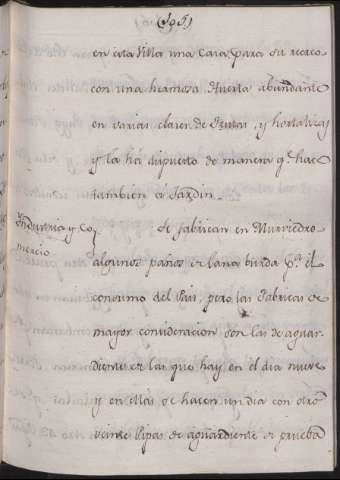 (195)
en esta Villa una Casa para su recreo
con una hermosa Huerta abundante
en varias clases de Frutas, y hortalizas
y la há dispuesto de manera q.e hace
también de Jardin.
Industria y Co
mercio
Se fabrican en Murviedro
algunos paños de lana burda p.a el
consumo del Pais, pero las Fabricas de
mayor consideracion son las de aguar
diente de las que hay en el dia nueve
y en ellas se hacen un dia con otro
veinte Pipas de aguardiente de prueba